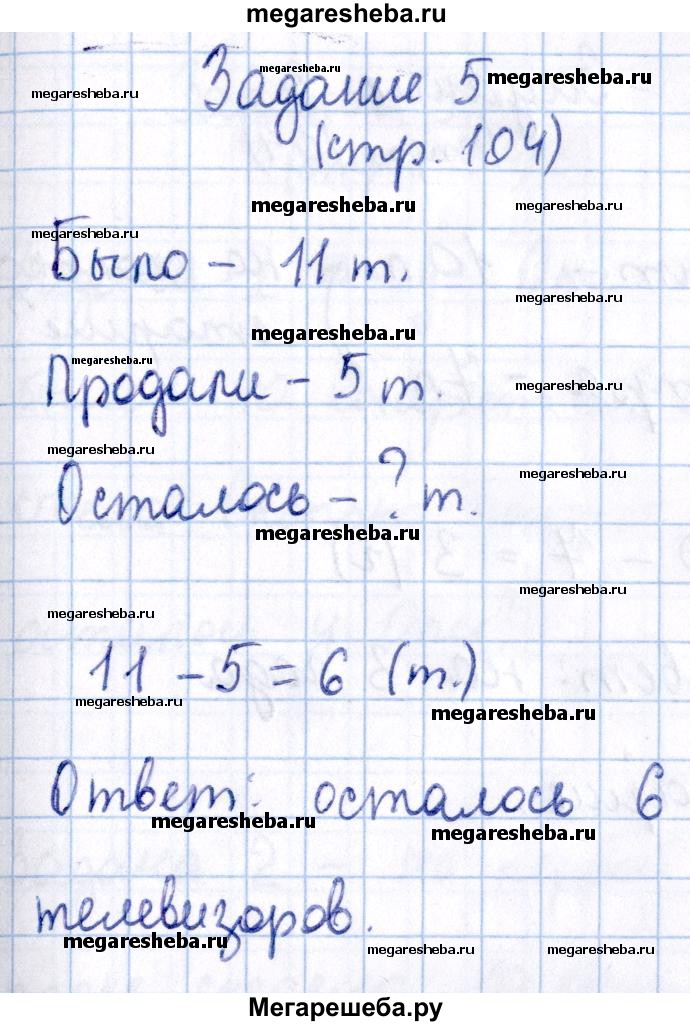 megaresheba.ru
megaresheba.ru
Задание 5
megaresheba.ru
megaresheba.ru
(стр. 104)
megaresheba.ru
megaresheba.ru
megaresheba.ru
Было – 11 т.
megaresheba.ru
megaresheba.ru
megaresheba.ru
Продали – 5 т.
megaresheba.ru
megaresheba.ru
Осталось – ? т.
megaresheba.ru
megaresheba.ru
megaresheba.ru
11 – 5 = 6 (т.)
megaresheba.ru
megaresheba.ru
Ответ: осталось 6
megaresheba.ru
megaresheba.ru
телевизоров.
megaresheba.ru
megaresheba.ru
megaresheba.ru
Мегарешеба.ру